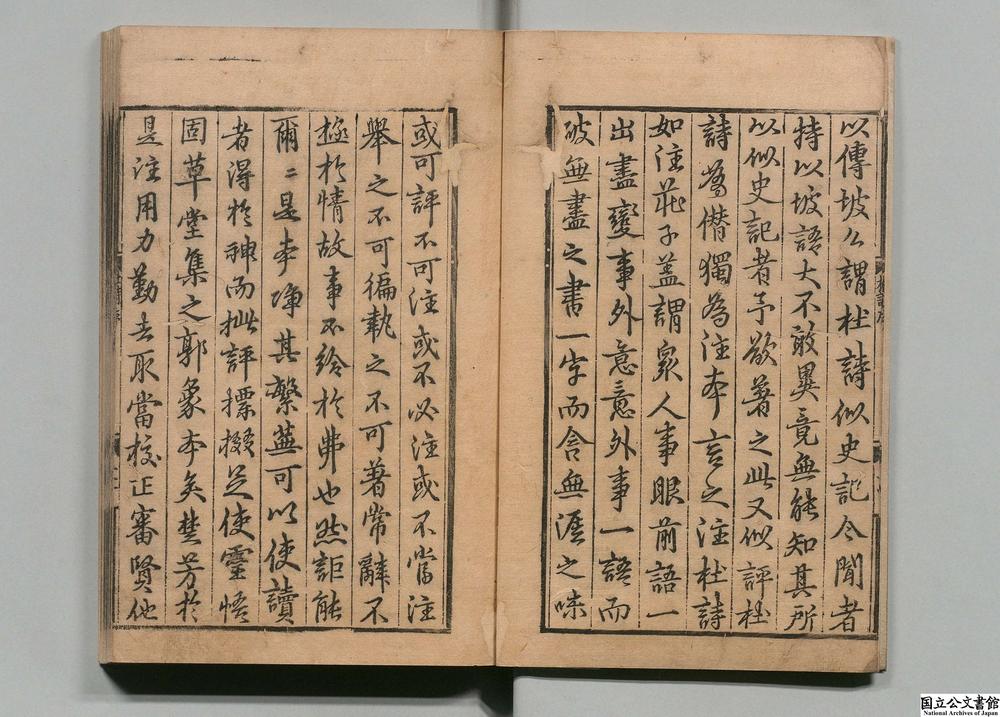 以傳坡公謂杜詩似史記今聞者
特以坡語大不敢異竟無能知其所
以似史記者予欲著之此又似評杜
詩為僭獨為注本言之注杜詩
如注莊子盖謂衆人事眼前語一
出盡變事外意意外事一語而
破無盡之書一字而含無涯之味
或可評不可注或不必注或不當注
舉之不可徧執之不可著常辭不
極於情故事不給於弗也然詎能
爾〻是本淨其繁蕪可以使讀
者得於神而批評摽掇足使靈悟
固草堂集之郭象本矣楚芳於
是注用力勤去取當校正審賢他
国立公文書館
National Archives of Japan